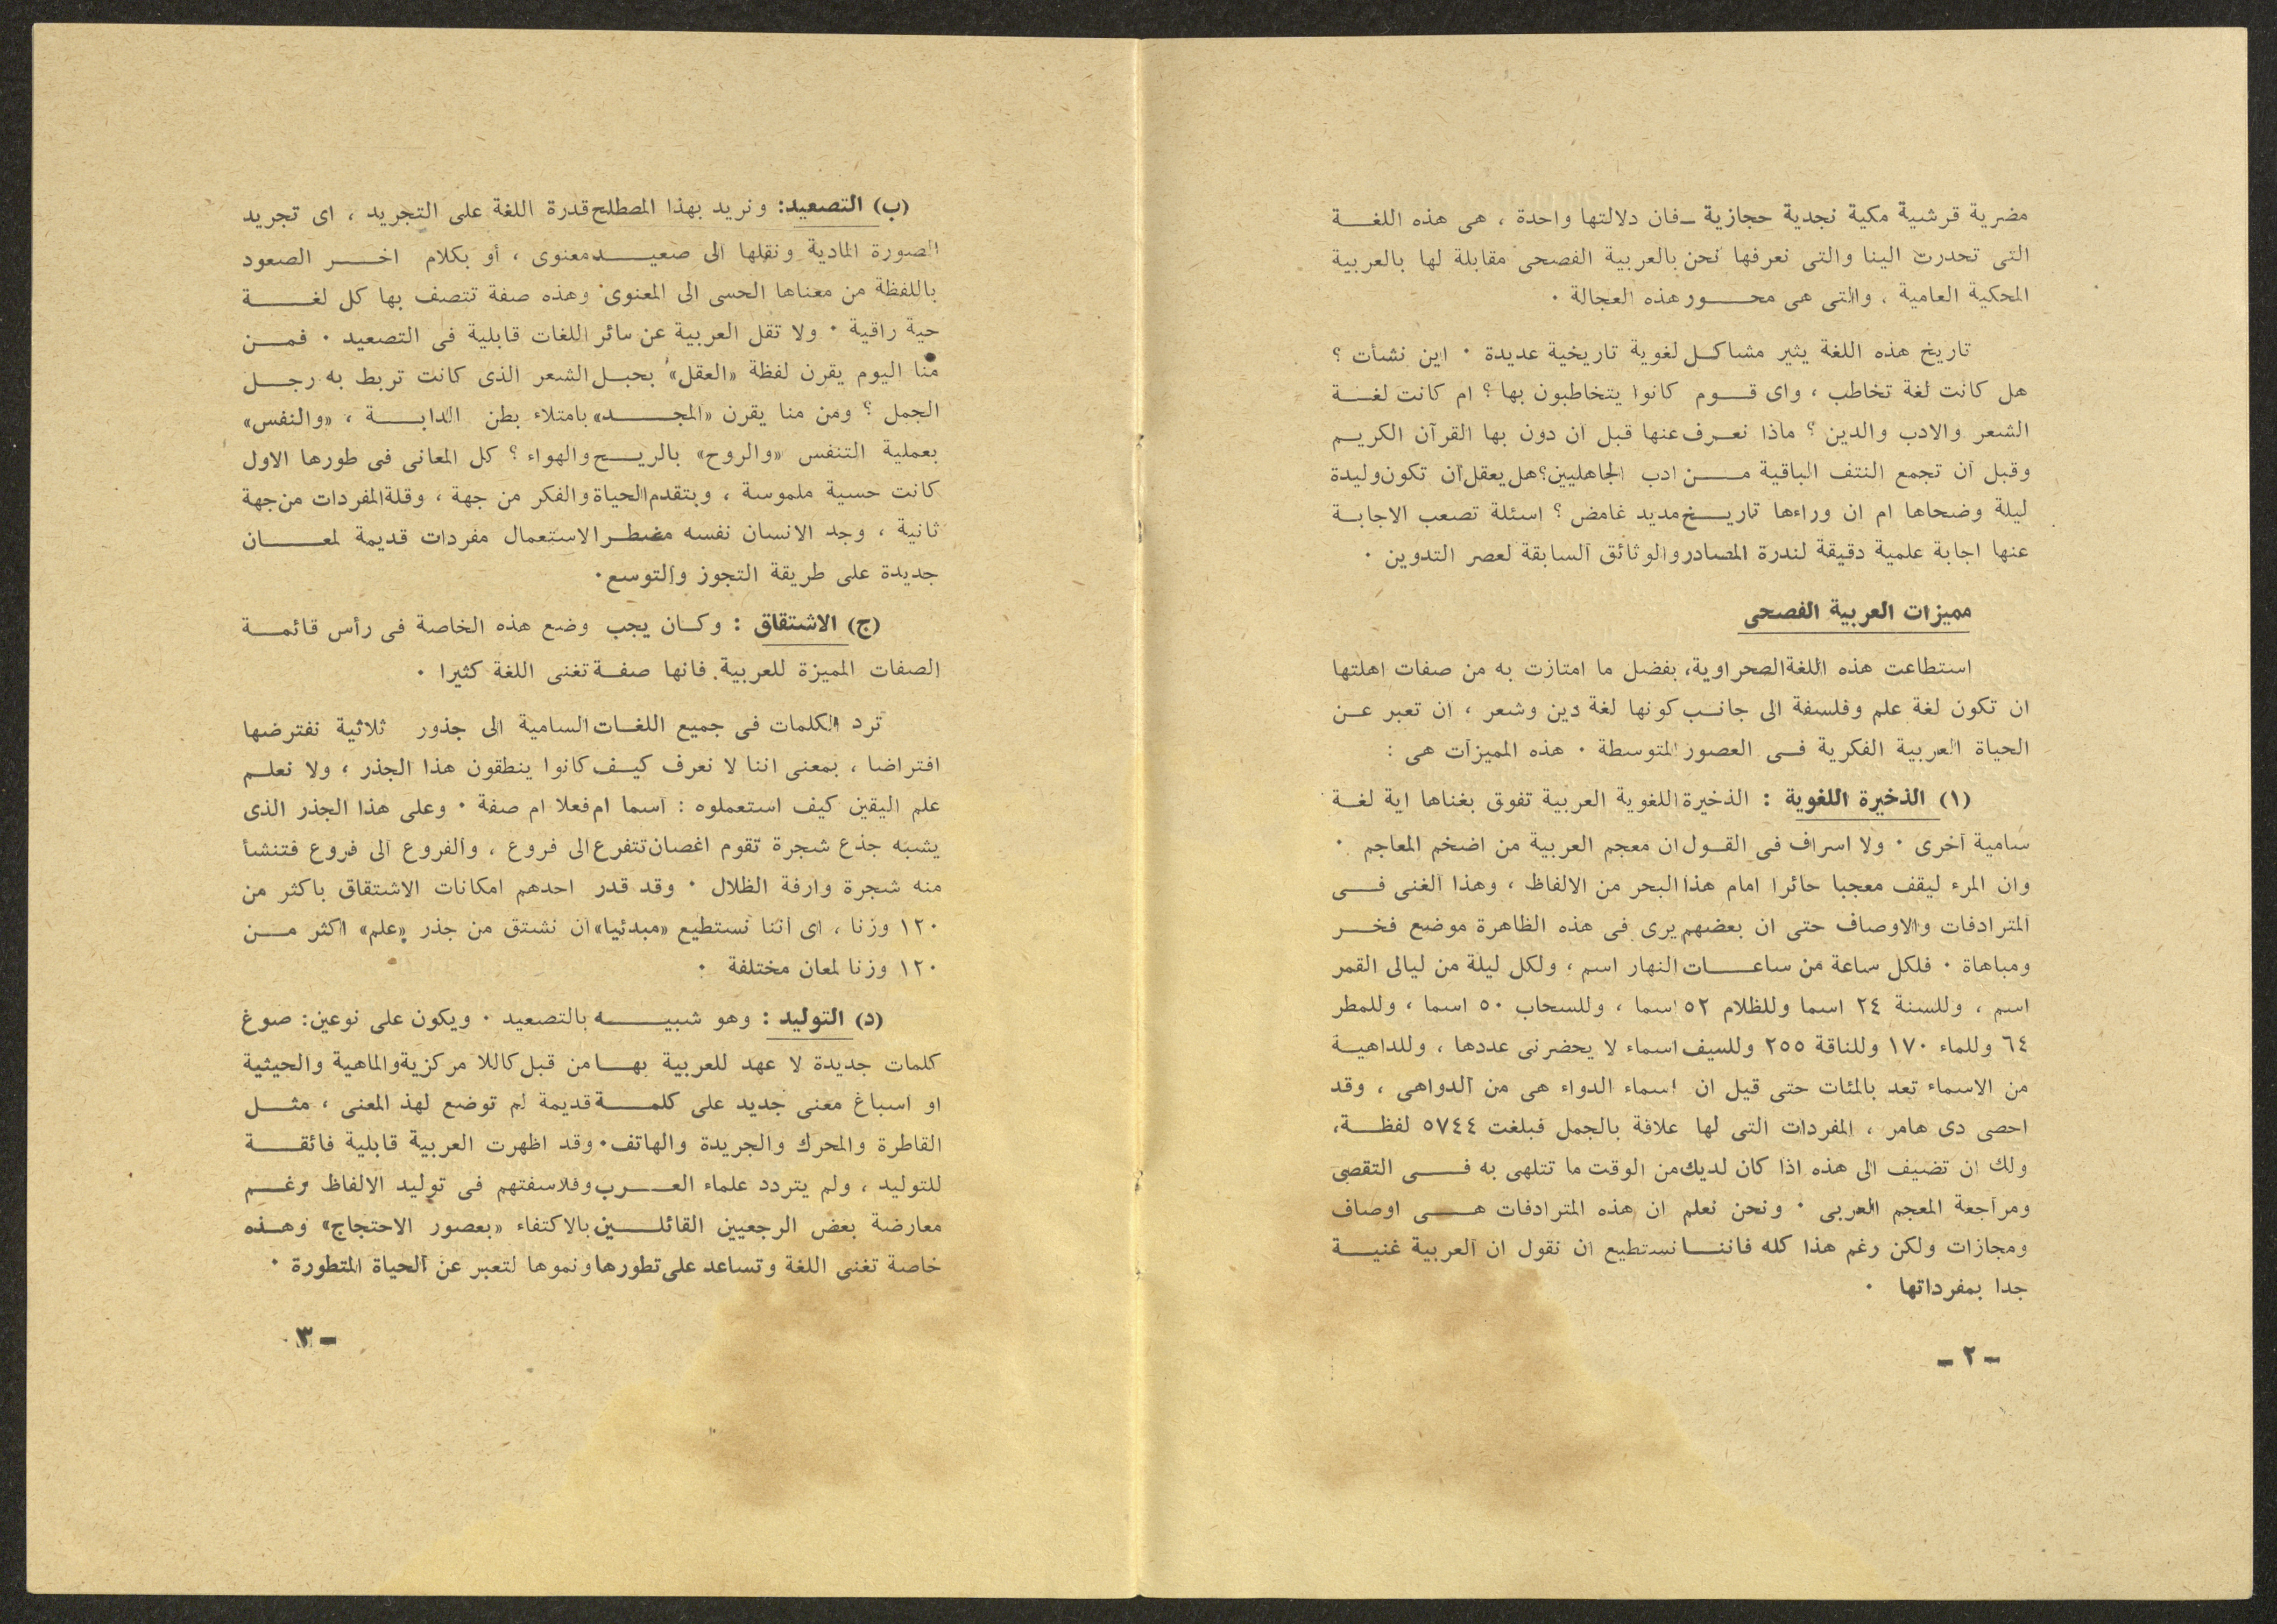 مضرية قرشية مكية نجدية حجازية ــ فان دلالتها واحدة ، هى هذه اللغـــة
التى تحدرت الينا والتى نعرفها نحن بالعربية الفصحى مقابلة لها بالعربية
المحكية العامية ، والتى هى محـــور هذه العجالة ٠
تاريخ هذه اللغة يثير مشاكـل لغوية تاريخية عديدة ٠ اين نشأت ؟
هل كانت لغة تخاطب ، واى قـوم كانوا يتخاطبون بها ؟ ام كانت لغـة
الشعر والادب والدين ؟ ماذا نعـرف عنها قبل ان دون بها القرآن الكريـم
وقبل ان تجمع النتف الباقية مـــن ادب الجاهليين؟ هل يعقل ان تكون وليدة
ليلة وضحاها ام ان وراءها تاريـخ مديد غامض ؟ اسئلة تصعب الاجابـة
عنها اجابة علمية دقيقة لندرة المصادر والوثائق السابقة لعصر التدوين ٠
مميزات العربية الفصحى
استطاعت هذه اللغة الصحراوية، بفضل ما امتازت به من صفات اهلتها
ان تكون لغة علم وفلسفة الى جانـب كونها لغة دين وشعر ، ان تعبر عـن
الحياة العربية الفكرية فـى العصور المتوسطة ٠ هذه المميزات هى :
(١) الذخيرة اللغوية : الذخيرة اللغوية العربية تفوق بغناها اية لغـة
سامية أخرى ٠ ولا اسراف فى القـول ان معجم العربية من اضخم المعاجم ٠
وان المرء ليقف معجبا حائرا امام هذا البحر من الالفاظ ، وهذا الغنى فــى
المترادفات والاوصاف حتى ان بعضهم يرى فى هذه الظاهرة موضع فخـر
ومباهاة ٠ فلكل ساعة من ساعـــات النهار اسم ، ولكل ليلة من ليالى القمر
اسم ، وللسنة ٢٤ اسما وللظلام ٥٢ اسما ، وللسحاب ٥٠ اسما ، وللمطر
٦٤ وللماء ١٧٠ وللناقة ٢٥٥ وللسيف اسماء لا يحضرنى عددها ، وللداهيـة
من الاسماء تعد بالمئات حتى قيل ان اسماء الدواء هى من الدواهى ، وقد
احصى دى هامر ، المفردات التى لها علاقة بالجمل فبلغت ٥٧٤٤ لفظـة،
ولك ان تضيف الى هذه اذا كان لديك من الوقت ما تتلهى به فـــى التقصى
ومراجعة المعجم العربى ٠ ونحن نعلم ان هذه المترادفات هـــى اوصاف
ومجازات ولكن رغم هذا كله فاننـــا نستطيع ان نقول ان العربية غنيـة
جدا بمفرداتها ٠
ــ ٢ ــ
(ب) التصعيد: ونريد بهذا المصطلح قدرة اللغة على التجريد ، اى تجريد
الصورة المادية ونقلها الى صعيـــد معنوى ، أو بكلام اخـــر الصعود
باللفظة من معناها الحسى الى المعنوى٠ وهذه صفة تتصف بها كل لغـــة
حية راقية ٠ ولا تقل العربية عن سائر اللغات قابلية فى التصعيد ٠ فمــن
منا اليوم يقرن لفظة «العقل» بحبـل الشعر الذى كانت تربط به رجـل
الجمل ؟ ومن منا يقرن «المجــد» بامتلاء بطن الدابـــة ، «والنفس»
بعملية التنفس «والروح» بالريـح والهواء ؟ كل المعانى فى طورها الاول
كانت حسية ملموسة ، وبتقدم الحياة والفكر من جهة ، وقلة المفردات من جهة
ثانية ، وجد الانسان نفسه مضطـر الاستعمال مفردات قديمة لمعـــان
جديدة على طريقة التجوز والتوسع٠
(ج) الاشتقاق : وكـان يجب وضع هذه الخاصة فى رأس قائمـة
الصفات المميزة للعربية. فانها صفـة تغنى اللغة كثيرا ٠
ترد الكلمات فى جميع اللغـات السامية الى جذور ثلاثية نفترضها
افتراضا ، بمعنى اننا لا نعرف كيـف كانوا ينطقون هذا الجذر ، ولا نعلـم
علم اليقين كيف استعملوه : اسما ام فعلا ام صفة ٠ وعلى هذا الجذر الذى
يشبه جذع شجرة تقوم اغصان تتفرع الى فروع ، والفروع الى فروع فتنشأ
منه شجرة وارفة الظلال ٠ وقد قدر احدهم امكانات الاشتقاق باكثر من
١٢٠ وزنا ، اى اننا نستطيع «مبدئيا» ان نشتق من جذر «علم» اكثر مــن
١٢٠ وزنا لمعان مختلفة ٠
(د) التوليد : وهو شبيـــه بالتصعيد ٠ ويكون على نوعين: صوغ
كلمات جديدة لا عهد للعربية بهـا من قبل كاللا مركزية والماهية والحيثية
او اسباغ معنى جديد على كلمـــة قديمة لم توضع لهذ المعنى ، مثـل
القاطرة والمحرك والجريدة والهاتف٠ وقد اظهرت العربية قابلية فائقـــة
للتوليد ، ولم يتردد علماء العــرب وفلاسفتهم فى توليد الالفاظ رغـم
معارضة بعض الرجعيين القائلــين بالاكتفاء «بعصور الاحتجاج» وهـذه
خاصة تغنى اللغة وتساعد على تطورها ونموها لتعبر عن الحياة المتطورة ٠
ــ ٣